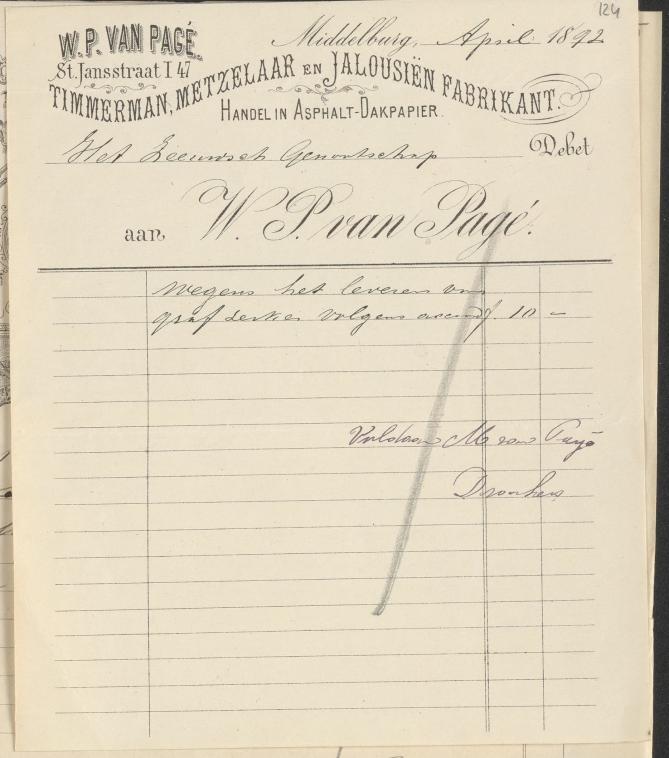 124
W.P. VAN PAGÉ.
Middelburg, April 1892
St. Jansstraat I 47
TIMMERMAN, METZELAAR EN JALOUSIËN FABRIKANT.
HANDEL IN ASPHALT-DAKPAPIER.
Het Zeeuwsch Genootschap Debet
aan W. P. van Pagé.
Wegens het leveren van
graf zerkes volgens accoord f. 10 -
Voldaan M van Pagé